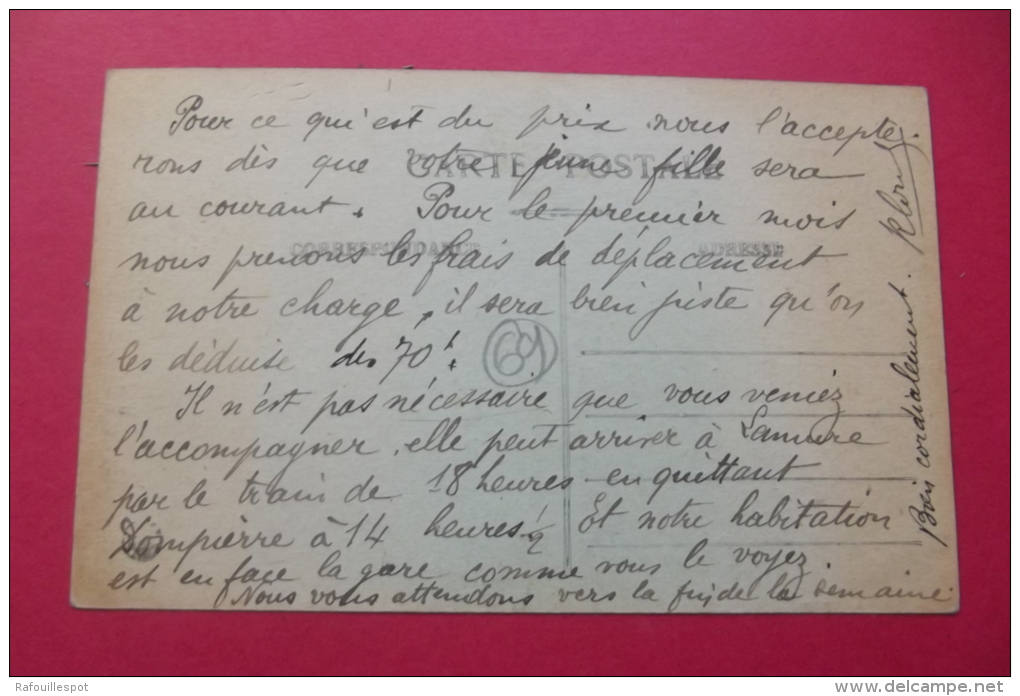 Pour ce qui est du prix nous l'accepte
rons dès que votre jeune fille sera
au courant. Pour le premier mois
nous prenons les frais de déplacement
à notre charge, il sera bien juste qu'on
les déduise des 70f.
Il n'est pas nécessaire que vous veniez
l'accompagner, elle peut arriver à Lamure
par le train de 18 heures en quittant
Dompierre à 14 heures 1/2 Et notre habitation
est en face la gare comme vous le voyez
Nous vous attendons vers la fin de la semaine
Bien cordialement.
CARTE POSTALE
CORRESPONDANCE
ADRESSE
69
Rafouillespot
www.delcampe.net